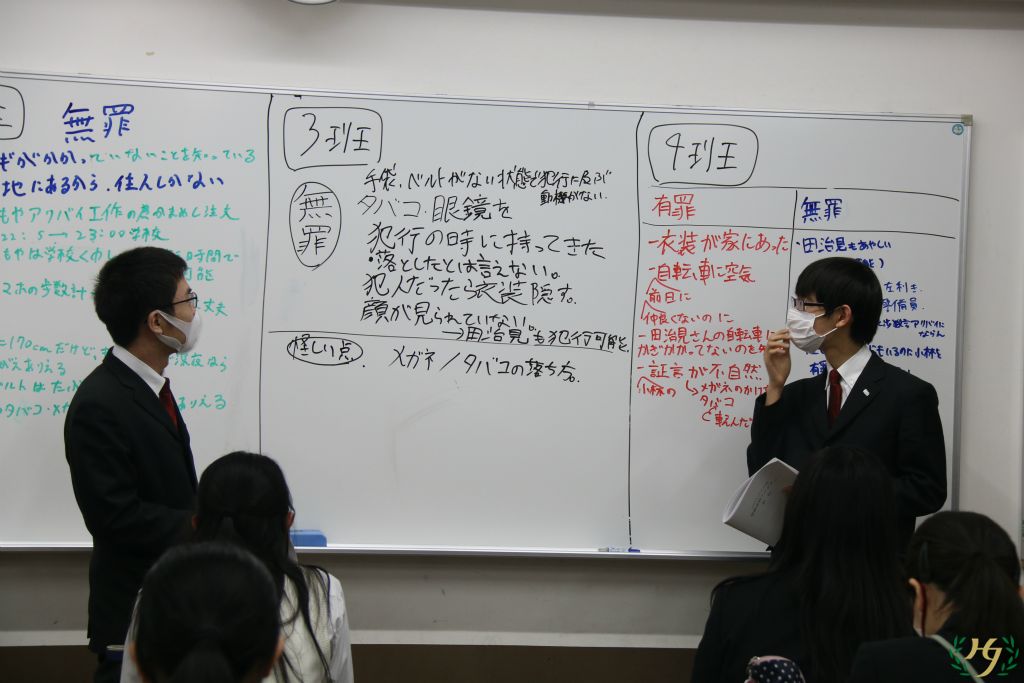 無罪
ギがかかっていないことを知っている
地にあるから、住人しかない
もやアリバイ工作の
22:5→23:00 学校
もやは学校
時間で
可能
マホの歩数計
丈夫
=170cmだけど、
がえありえる
ベルトは
タバコ・メガ
ありえる
3班
無罪
手袋、ベルトがない状態で犯行に及ぶ
動機がない.
タバコ、眼鏡を
犯行の時に持ってきた
・落としたとは言えない。
犯人だったら衣装隠す。
顔が見られていない
→田治見。も犯行可能.
怪しい点
メガネ/タバコの落ち方。
4班
有罪
-衣装が家にあった
-自転車に空気
前日に
仲良くないのに
-田治見さんの自転車に
かぎかかってないのを
-証言が不自然
小林の
メガネのかけ
タバコ
と転んだ
無罪
・田治見もあやしい
左利き.
アリバイに
ならん
いるのに小林を
HJ